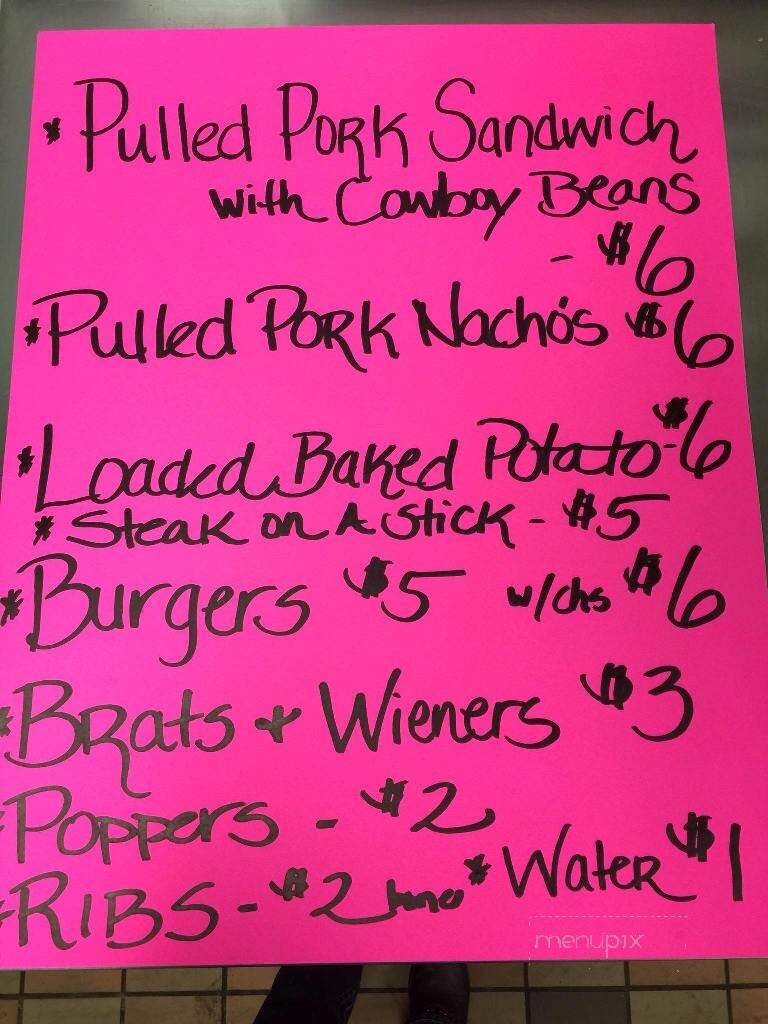 * Pulled Pork Sandwich
with Cowboy Beans
- $6
* Pulled Pork Nacho's $6
* Loaded Baked Potato - $6
* Steak on A Stick - $5
* Burgers $5 w/chs $6
* BRats & Wieners $3
* Poppers - $2
* RIBS - $2 * Water $1
menupix